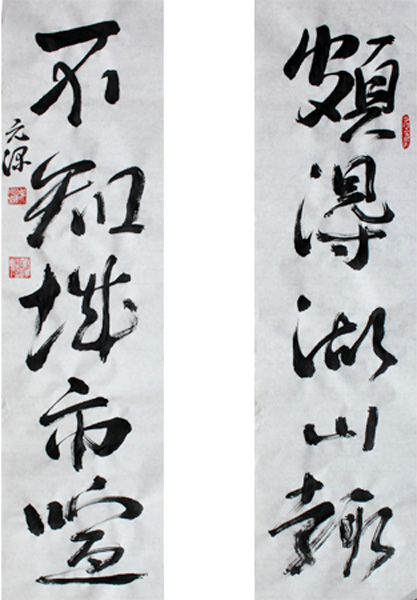 頗得湖山趣
不知城市喧
元深